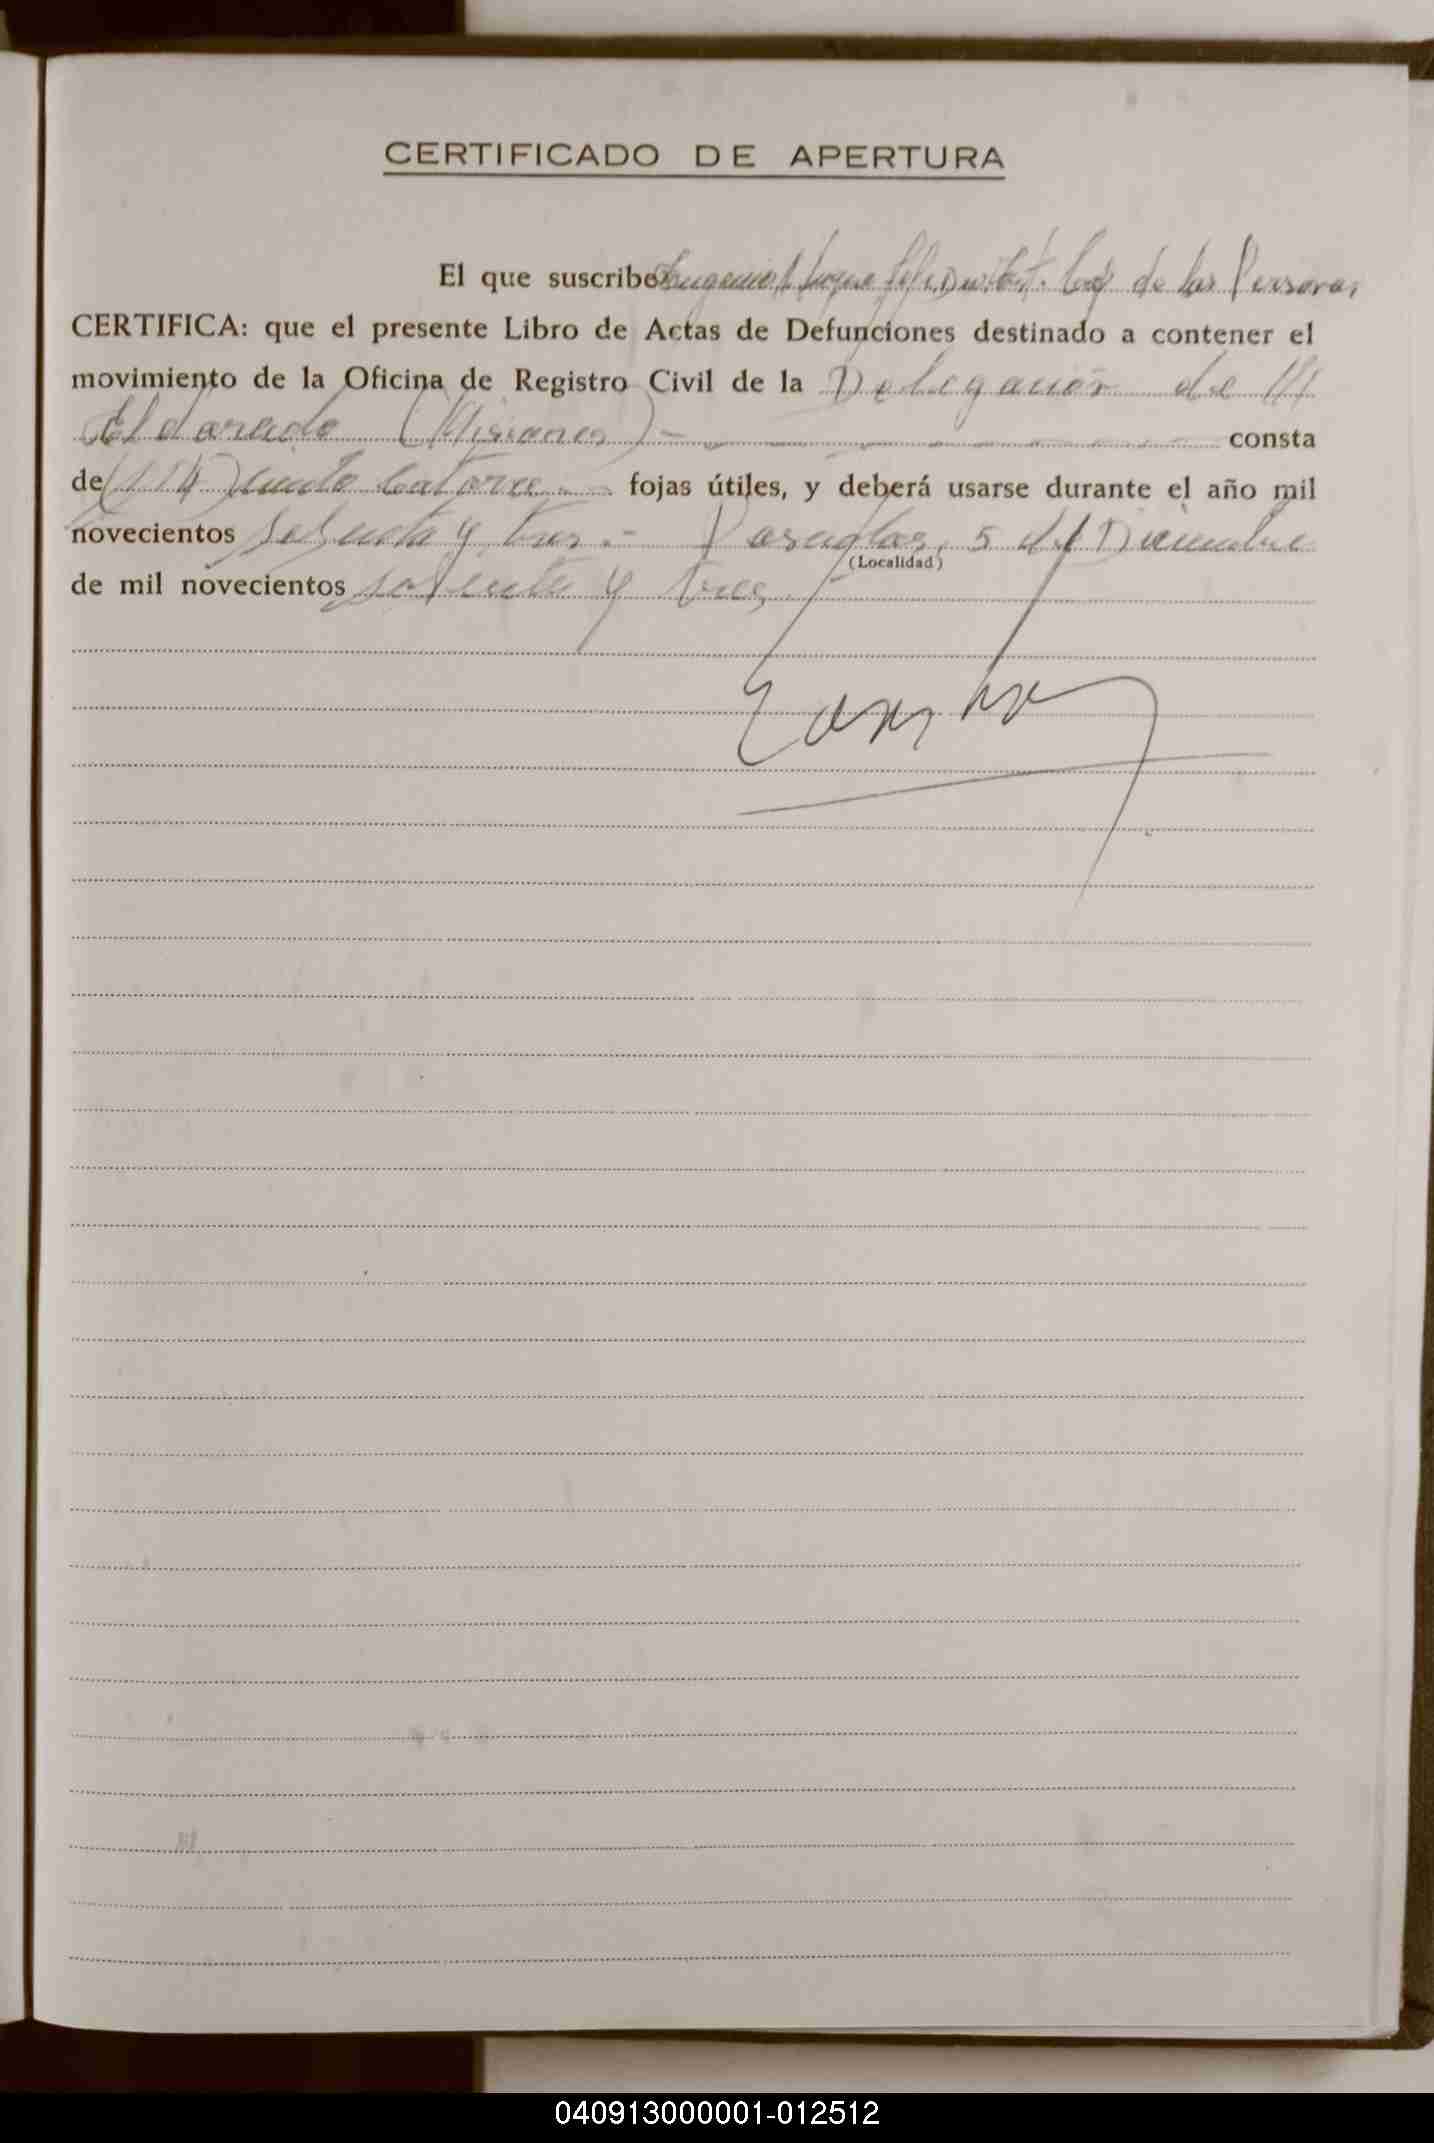 CERTIFICADO DE APERTURA
El que suscribe Eugenio de las Personas
CERTIFICA: que el presente Libro de Actas de Defunciones destinado a contener el
movimiento de la Oficina de Registro Civil de la Delegación de
Eldorado (Misiones) consta
de (114) ciento catorce fojas útiles, y deberá usarse durante el año mil
novecientos setenta y tres.- Posadas, 5 de Diciembre
(Localidad)
de mil novecientos setenta y tres
040913000001-012512